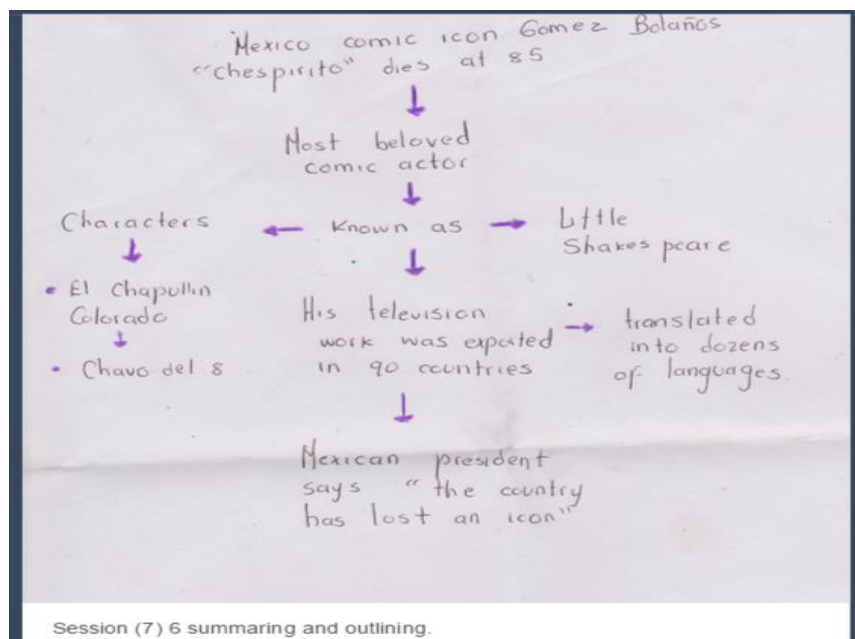 Mexico comic icon Gomez Bolaños
"Chespirito" dies at 85
Most beloved
comic actor
Characters
Known as
Little
Shakespeare
• El Chapullin
Colorado
• Chavo del 8
His television
work was expoted
in 90 countries
translated
into dozens
of languages.
Mexican president
says "the country
has lost an icon"
Session (7) 6 summaring and outlining.